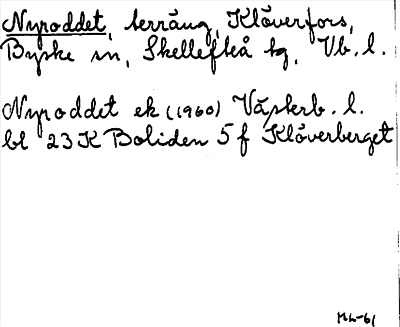 Nyroddet, terräng, Klåverfors,
Byske sn, Skellefteå tg, Vb. l.
Nyroddet ek (1960) Västerb. l.
bl 23 K Boliden 5 f Klåverberget
ML-61